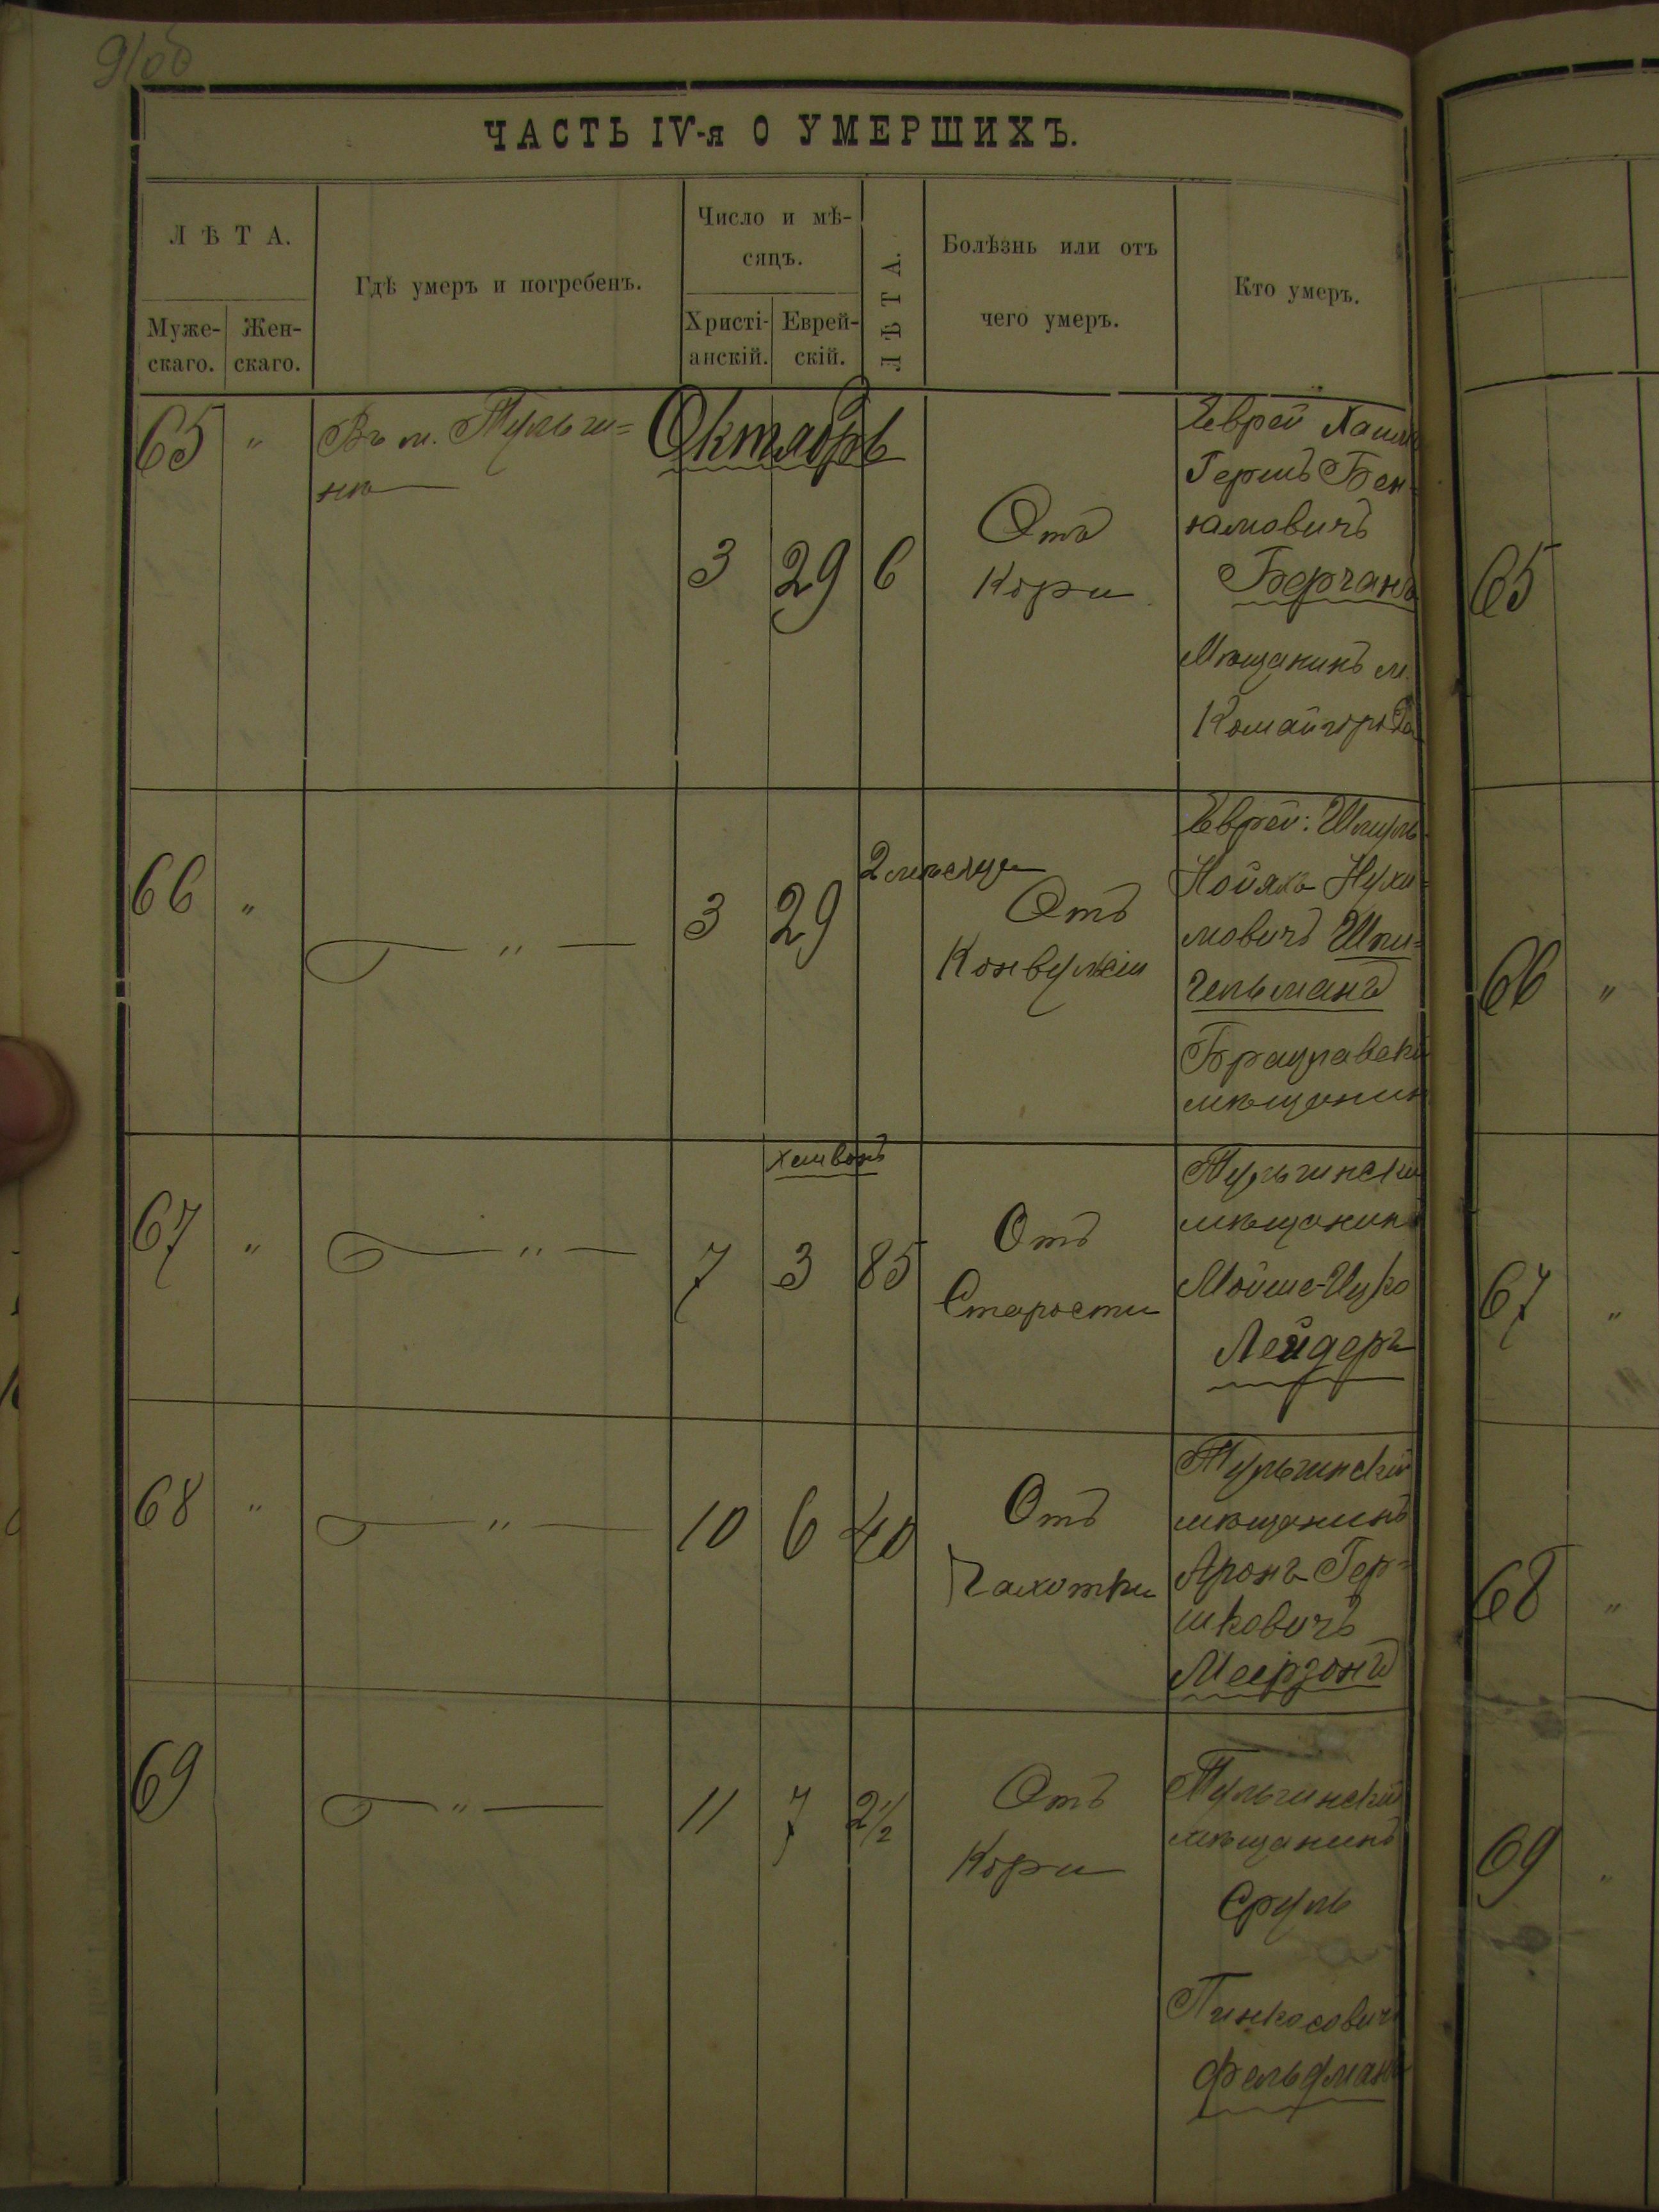 91об
ЧАСТЬ IV-я О УМЕРШИХЪ.
ЛѢТА.
Мужескаго.
Женскаго.
Гдѣ умеръ и погребенъ.
Число и мѣ-
сяцъ.
Христі-
анскій.
Еврей-
скій.
ЛѢТА.
Болѣзнь или отъ
чего умеръ.
Кто умеръ.
65 " Въ м. Тульчи=
нѣ
Октябрь
3 29 6
Отъ
Кори
Еврей Хаимъ
Гершъ Бен-
юмовичъ
Берчанъ
Мѣщанинъ м.
Комайгрода
65
66 " — " — 3 29
2 мѣсяца
Отъ
Конвульсіи
Еврей: Шмуль
Нойяхъ Нухи-
мовичъ Шпи=
гельманъ
Брацлавскі
мѣщанин
66 "
67 " — " —
Хешвонъ
7 3 85
Отъ
Старости
Тульчински
мѣщанинъ
Мойше-Ицко
Лейдеръ
67 "
68 " — " — 10 6 40
Отъ
Чахотки
Тульчинскій
мѣщанинъ
Аронъ Гер=
шковичъ
Меерзонъ
68 "
69 — " — 11 7 2½
Отъ
Кори
Тульчинскій
мѣщанинъ
Сруль
Пинкосович
Фельдманъ
69 "